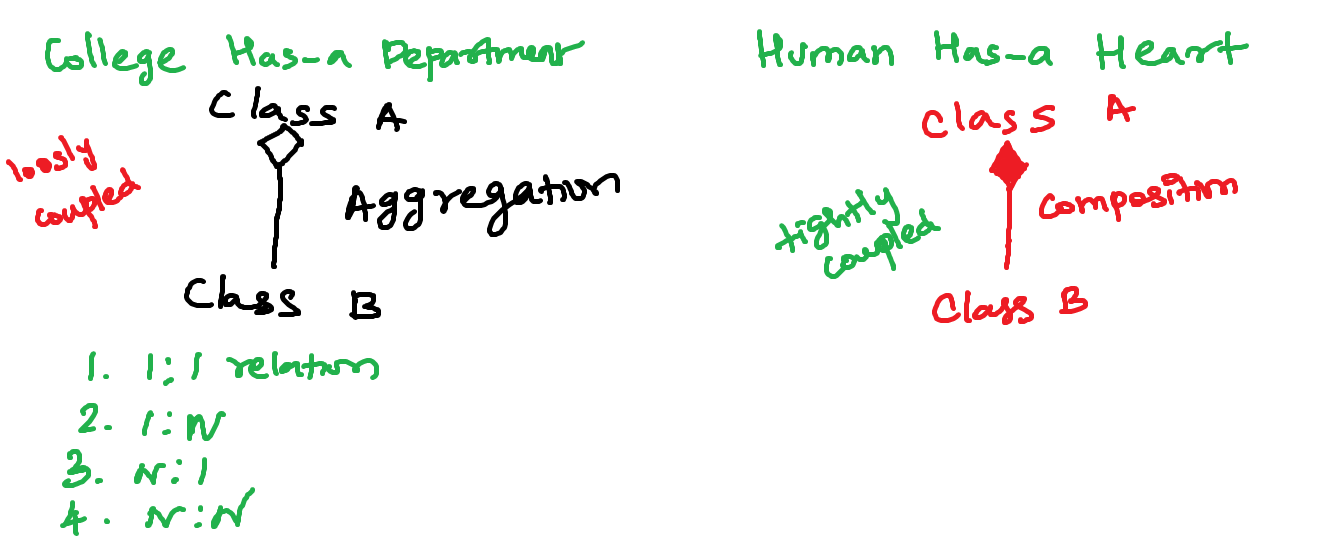 College Has-a Department
Class A
loosly
coupled
Aggregation
Class B
1. 1:1 relation
2. 1:N
3. N:1
4. N:N
Human Has-a Heart
Class A
Composition
tightly
coupled
Class B